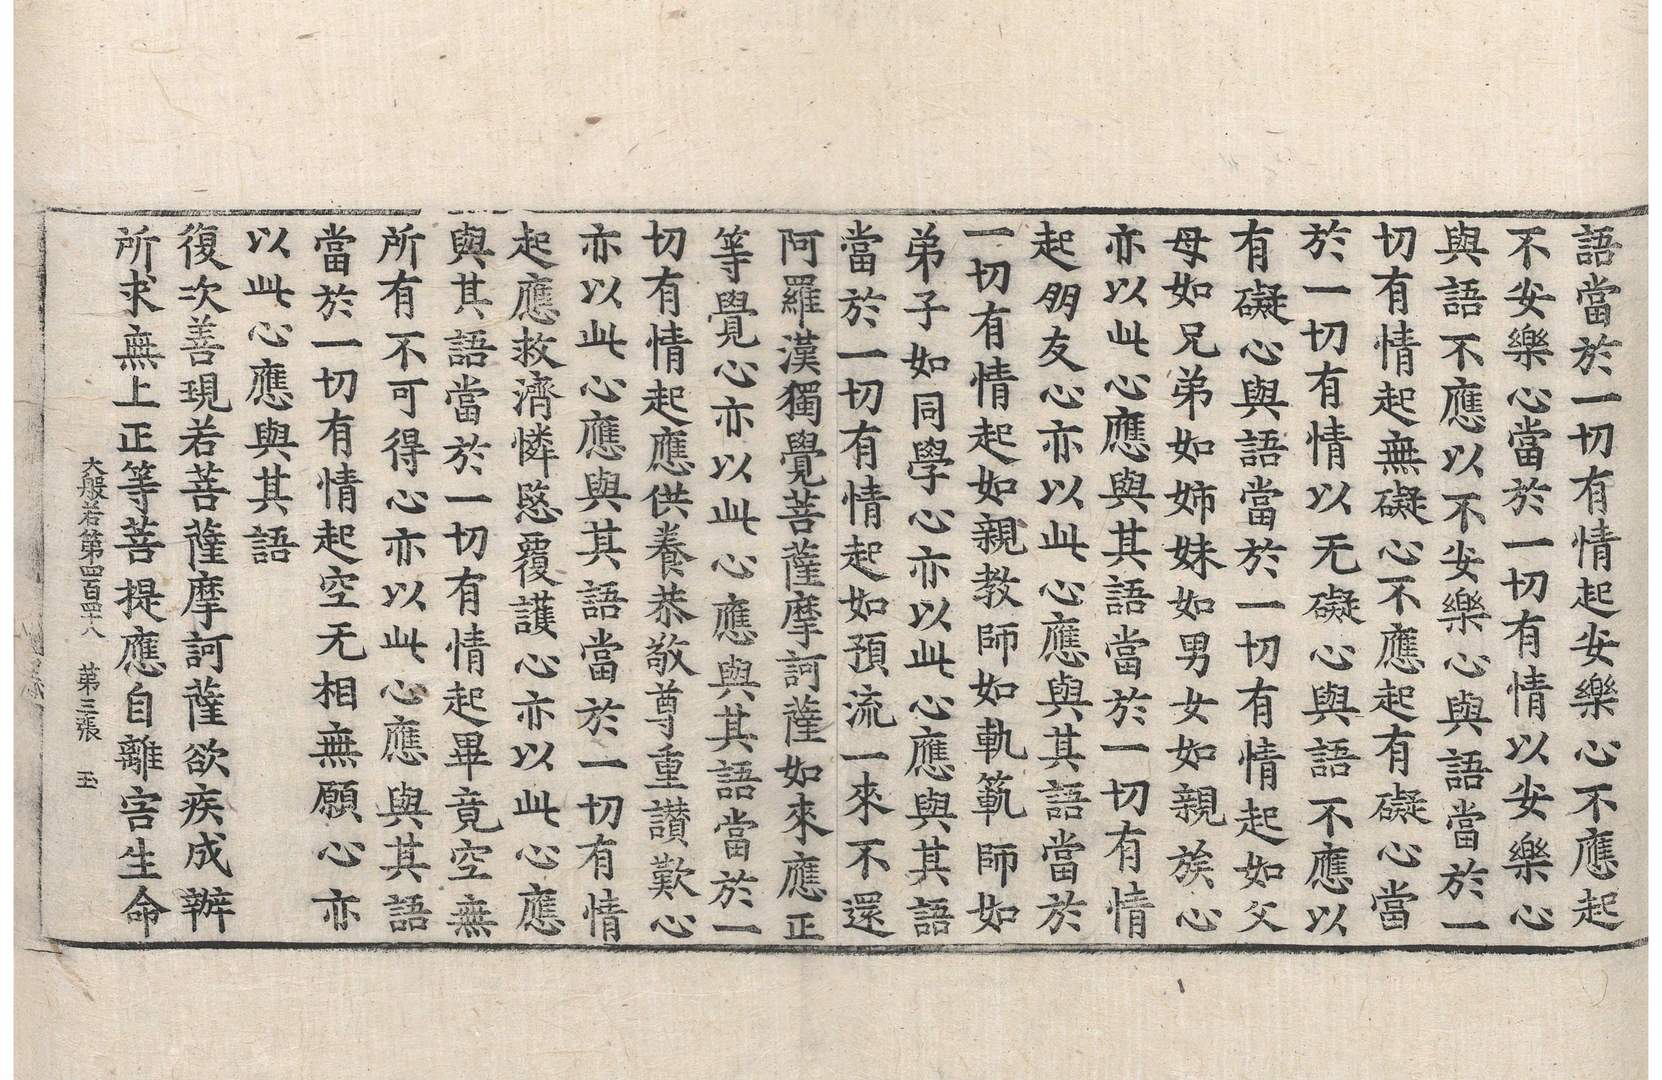 語當於一切有情起安樂心不應起
不安樂心當於一切有情以安樂心
與語不應以不安樂心與語當於一
切有情起無礙心不應起有礙心當
於一切有情以无礙心與語不應以
有礙心與語當於一切有情起如父
母如兄弟如姉妹如男女如親族心
亦以此心應與其語當於一切有情
起朋友心亦以此心應與其語當於
一切有情起如親教師如軌範師如
弟子如同學心亦以此心應與其語
當於一切有情起如預流一來不還
阿羅漢獨覺菩薩摩訶薩如來應正
等覺心亦以此心應與其語當於一
切有情起應供養恭敬尊重讃歎心
亦以此心應與其語當於一切有情
起應救濟憐愍覆護心亦以此心應
與其語當於一切有情起畢竟空無
所有不可得心亦以此心應與其語
當於一切有情起空无相無願心亦
以此心應與其語
復次善現若菩薩摩訶薩欲疾成辦
所求無上正等菩提應自離害生命
大般若第四百四十八　第三張　玉